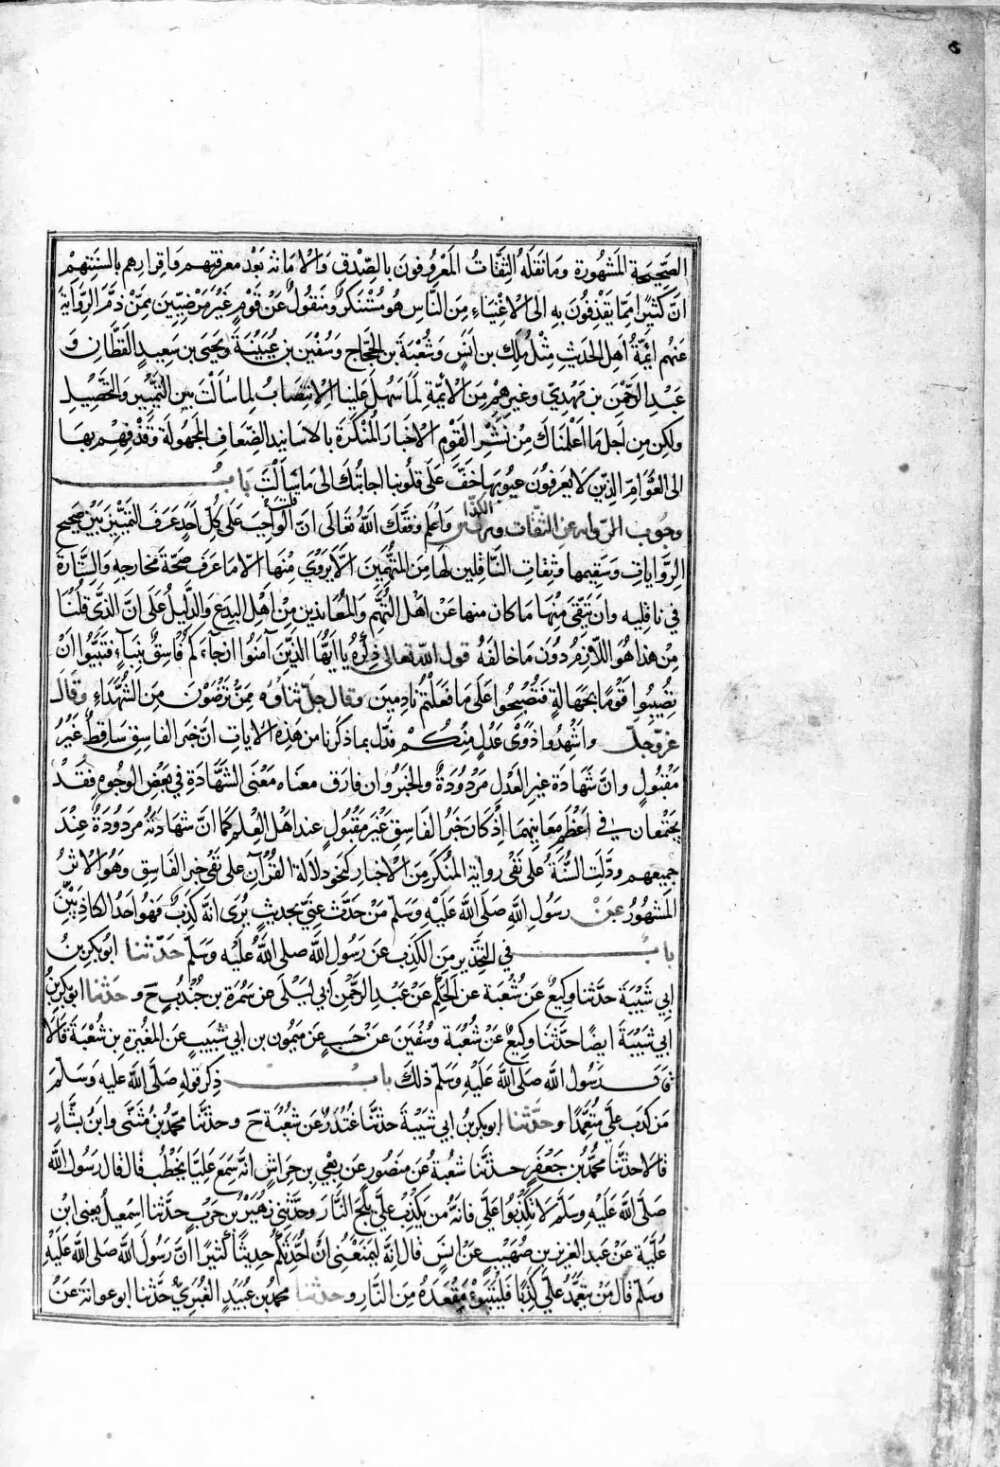 ٥
الصحيحة المشهورة ومما نقله الثقات المعروفون بالصدق والامانة بعد معرفتهم واقرارهم بالسنتهم
ان كثيرا مما يقذفون به الى الاغبياء من الناس هو مستنكر ومنقول عن قوم غير مرضيين ممن ذم الرواية
عنهم ايمة اهل الحديث مثل ملك بن انس وشعبة بن الحجاج وسفين بن عيينة ويحيى بن سعيد القطان و
عبد الرحمن بن مهدي وغيرهم من الأيمة لما سهل علينا الانتصاب لما سألت من التمييز والتحصيل
ولكن من اجل ما اعلمناك من نشر القوم الاخبار المنكرة بالاسانيد الضعاف المجهولة وقذفهم بها
الى العوام الذين لا يعرفون عيوبها خف على قلوبنا اجابتك الى ما سألت باب
وجوب الرواية عن الثقات وترك الكذابين واعلم وفقك الله تعالى ان الواجب على كل احد عرف التمييز بين صحيح
الروايات وسقيمها وثقات الناقلين لها من المتهمين الا يروي منها الا ما عرف صحة مخارجه والستارة
في ناقليه وان يتقى منها ما كان منها عن اهل التهم والمعاندين من اهل البدع والدليل على ان الذي قلنا
من هذا هو اللازم دون ما خالفه قول الله تعالى ذكره يا ايها الذين آمنوا ان جاءكم فاسق بنباء فتبينوا ان
تصيبوا قوما بجهالة فتصبحوا على ما فعلتم نادمين وقال جل ثناؤه ممن ترضون من الشهداء وقال
عز وجل واشهدوا ذوي عدل منكم فدل بما ذكرنا من هذه الايات ان خبر الفاسق ساقط غير
مقبول وان شهادة غير العدل مردودة والخبر وان فارق معناه معنى الشهادة في بعض الوجوه فقد
يجتمعان في اعظم معانيهما اذ كان خبر الفاسق غير مقبول عند اهل العلم كما ان شهادته مردودة عند
جميعهم ودلت السنة على نفى رواية المنكر من الاخبار كنحو دلالة القرآن على نفى خبر الفاسق وهو الاثر
المشهور عن رسول الله صلى الله عليه وسلم من حدث عني بحديث يرى انه كذب فهو احد الكاذبين
باب في التحذير من الكذب عن رسول الله صلى الله عليه وسلم حدثنا ابو بكر بن
ابي شيبة حدثنا وكيع عن شعبة عن الحكم عن عبد الرحمن ابي ليلى عن سمرة بن جندب ح و حدثنا ابو بكر بن
ابي شيبة ايضا حدثنا وكيع عن شعبة وسفين عن حبيب عن ميمون بن ابي شبيب عن المغيرة بن شعبة قالا
قال رسول الله صلى الله عليه وسلم ذلك باب ذكر قوله صلى الله عليه وسلم
من كذب على متعمدا وحدثنا ابو بكر بن ابي شيبة حدثنا غندر عن شعبة ح وحدثنا محمد بن مثنى وابن بشار
قالا حدثنا محمد بن جعفر حدثنا شعبة عن منصور عن ربعي بن حراش انه سمع عليا يخطب قال قال رسول الله
صلى الله عليه وسلم لا تكذبوا على فانه من يكذب على يلج النار وحدثني زهير بن حرب حدثنا اسمعيل يعني ابن
علية عن عبد العزيز بن صهيب عن انس قال انه ليمنعني ان احدثكم حديثا كثيرا ان رسول الله صلى الله عليه
وسلم قال من تعمد على كذبا فليتبوء مقعده من النار وحدثنا محمد بن عبيد الغبري حدثنا ابو عوانة عن